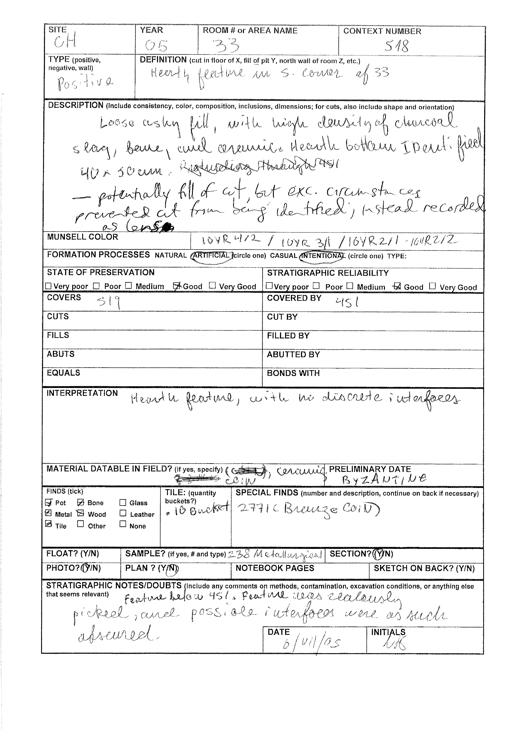 SITE YEAR ROOM # or AREA NAME CONTEXT NUMBER
CH 05 33 518
TYPE (positive, negative, wall) DEFINITION (cut in floor of X, fill of pit Y, north wall of room Z, etc.)
Positive Hearth feature in S. corner of 33
DESCRIPTION (include consistency, color, composition, inclusions, dimensions; for cuts, also include shape and orientation)
Loose ashy fill, with high density of charcoal
slag, bone, and ceramic. Hearth bottom Identified
40 x 50cm.
— potentially fill of cut, but exc. circumstances
prevented cut from being identified; instead recorded
as lens
MUNSELL COLOR 10YR 4/2 / 10YR 3/1 / 10YR 2/1 - 10YR 2/2
FORMATION PROCESSES NATURAL ARTIFICIAL (circle one) CASUAL INTENTIONAL (circle one) TYPE:
STATE OF PRESERVATION STRATIGRAPHIC RELIABILITY
Very poor Poor Medium Good Very Good Very poor Poor Medium Good Very Good
COVERS 519 COVERED BY 451
CUTS CUT BY
FILLS FILLED BY
ABUTS ABUTTED BY
EQUALS BONDS WITH
INTERPRETATION Hearth feature, with no discrete interfaces
MATERIAL DATABLE IN FIELD? (if yes, specify) COIN, ceramic PRELIMINARY DATE
BYZANTINE
FINDS (tick) TILE: (quantity buckets?) SPECIAL FINDS (number and description, continue on back if necessary)
Pot Bone Glass Bucket 2771 (Bronze Coin)
Metal Wood Leather
Tile Other None
FLOAT? (Y/N) SAMPLE? (if yes, # and type) 238 Metallurgical SECTION? (Y/N)
PHOTO? (Y/N) PLAN ? (Y/N) NOTEBOOK PAGES SKETCH ON BACK? (Y/N)
STRATIGRAPHIC NOTES/DOUBTS (Include any comments on methods, contamination, excavation conditions, or anything else
that seems relevant) Feature below 451. Feature was zealously
picked, and possible interfaces were as such
obscured.
DATE INITIALS
6/VII/05